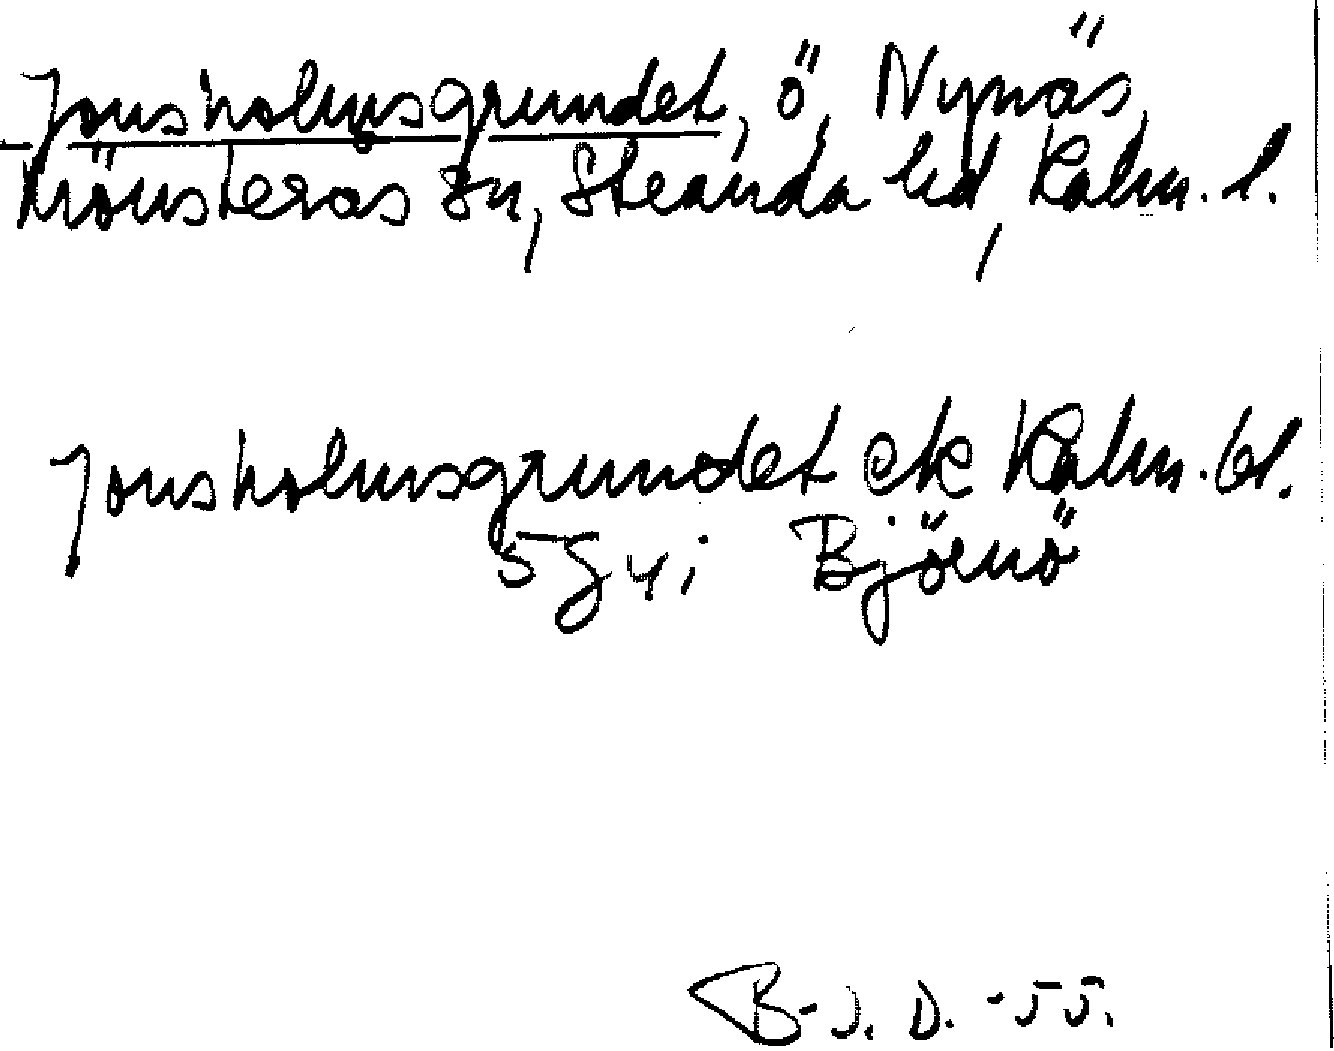 Jonsholmsgrundet, ö, Nynäs,
Mönsterås sn, Stranda hd, Kalm. l.
Jonsholmsgrundet ek Kalm. bl.
5 g 4 i Björnö
B-J. D. -55.